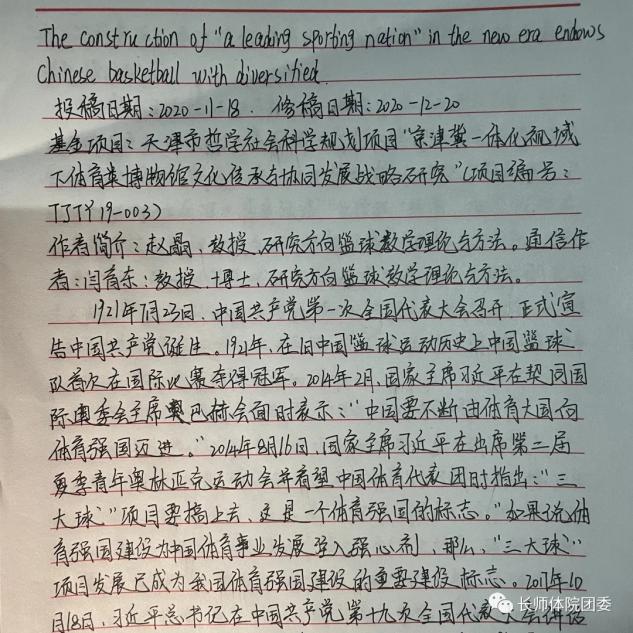 The construction of "a leading sporting nation" in the new era endows
Chinese basketball with diversified
投稿日期：2020-11-18. 修稿日期：2020-12-20
基金项目：天津市哲学社会科学规划项目"京津冀一体化视域
下体育类博物馆文化传承与协同发展战略研究"（项目编号：
TJTY19-003）
作者简介：赵晶，教授，研究方向篮球教学理论与方法。通信作
者：闫育东：教授，博士，研究方向篮球教学理论与方法。
1921年7月23日，中国共产党第一次全国代表大会召开，正式宣
告中国共产党诞生。1921年，在旧中国篮球运动历史上中国篮球
队首次在国际比赛夺得冠军。2014年2月，国家主席习近平在契同国
际奥委会主席奥巴赫会面时表示："中国要不断由体育大国向
体育强国迈进。"2014年8月16日，国家主席习近平在出席第二届
夏季青年奥林匹克运动会并看望中国体育代表团时指出："三
大球"项目要搞上去，这是一个体育强国的标志。"如果说体
育强国建设为中国体育事业发展注入强心剂，那么，"三大球"
项目发展已成为我国体育强国建设的重要建设标志。2017年10
月18日，习近平总书记在中国共产党第十九次全国代表大会讲话
长师体院团委